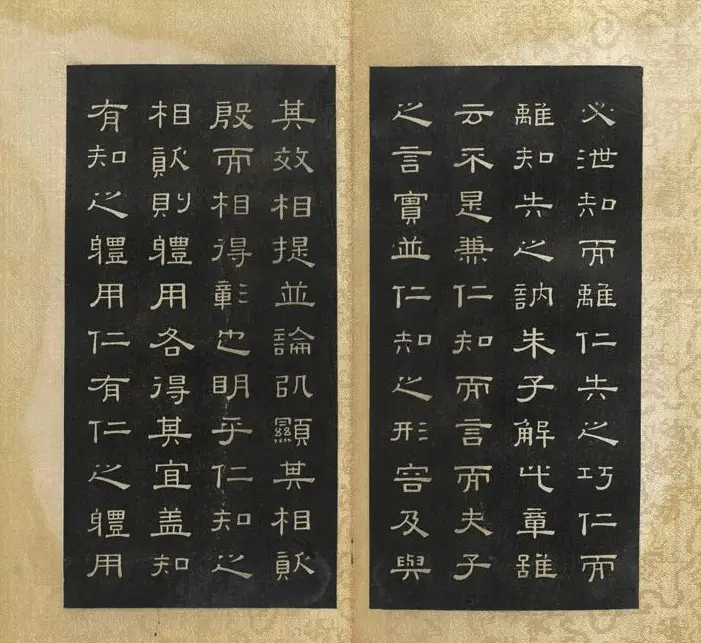 必泄知而離仁失之巧仁而
離知失之訥朱子解此章雖
云不是兼仁知而言而夫子
之言實並仁知之形容及與
其效相提並論以顯其相須
殷而相得彰也明乎仁知之
相須則軆用各得其宜蓋知
有知之軆用仁有仁之軆用